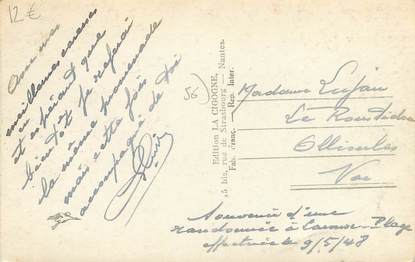 12€
Avec mes
meilleures caresses
et espérant que
bientôt je referai
la même promenade
mais cette fois
accompagné de toi
56)
Edition LA CIGOGNE,
bis, rue de Strasbourg - Nantes.
Fab. Franç. - Rep. Inter.
Madame Lujan
Le
Ollioules
Var
Souvenir d'une
randonnée à Larmor-Plage
effectuée le 9/5/48